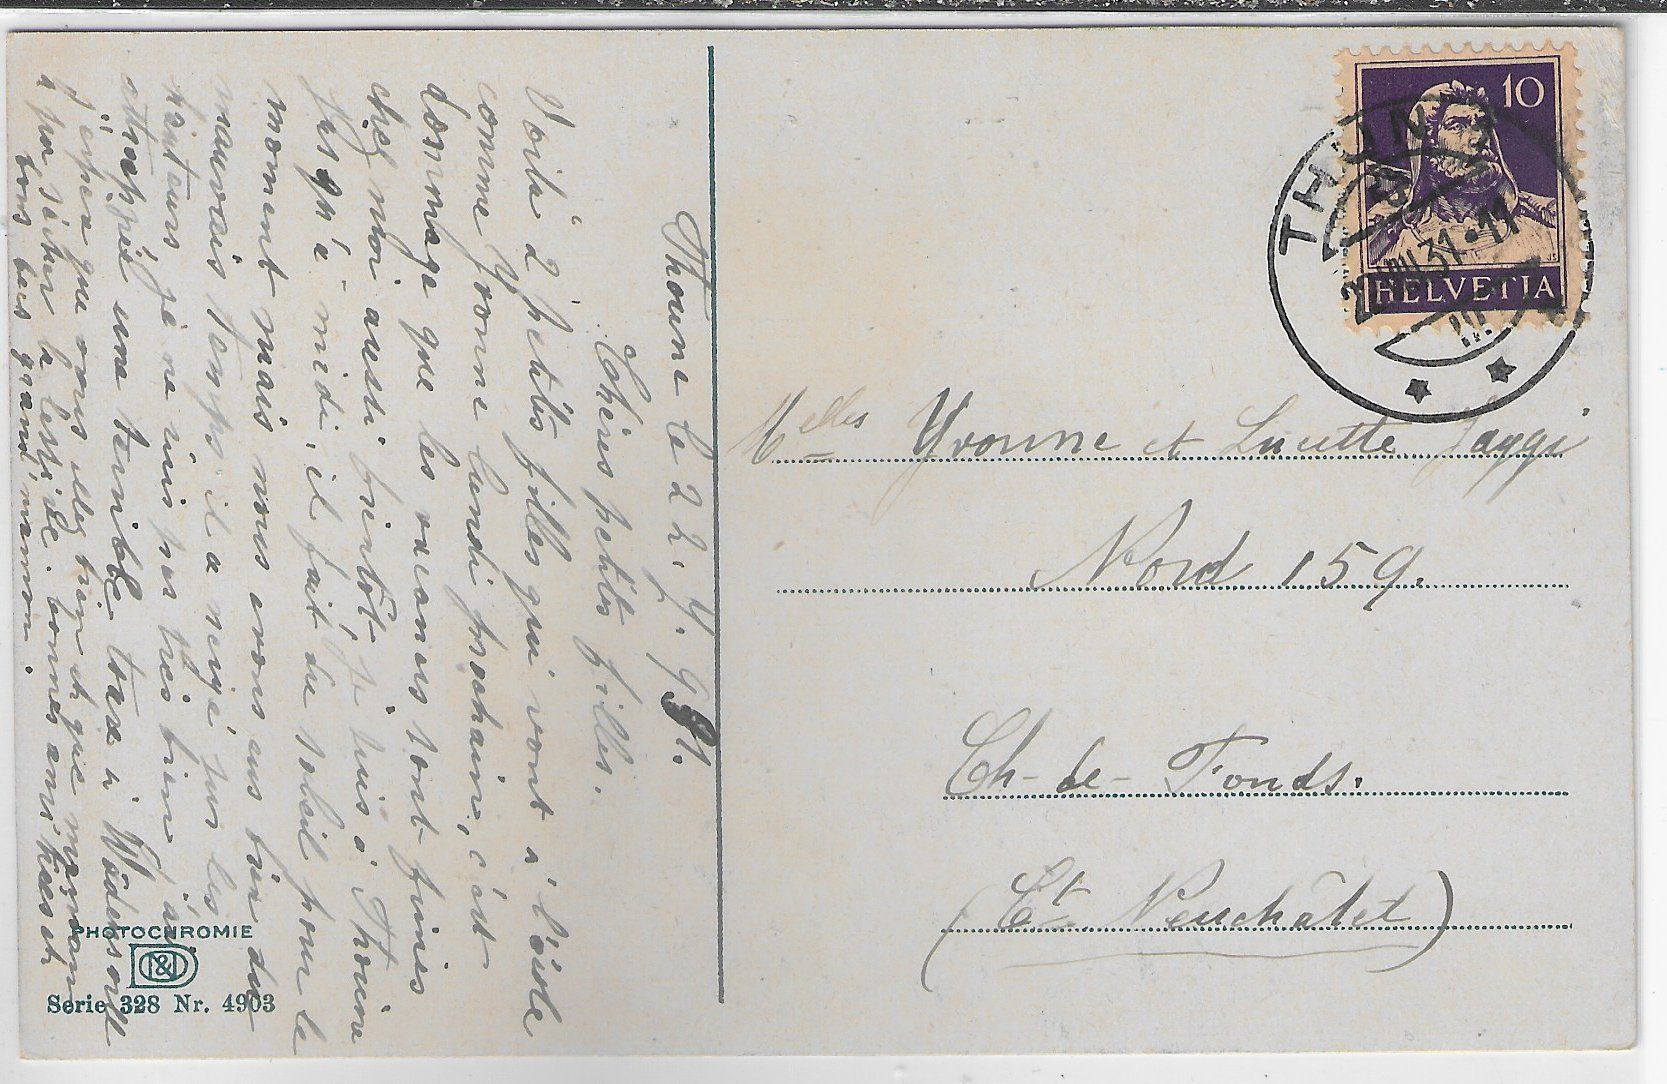 Thoune le 22. 7. 931.
Chères petites filles.
Voilà 2 petites filles qui vont à l'école
comme Yvonne lundi prochain, c'est
dommage que les vacances sont finies
chez moi aussi bientôt, je suis à Thoune
jusqu'à midi, il fait du soleil pour le
moment mais nous avons eus bien du
mauvais temps, il a neigé sur les
hauteurs, je ne suis pas très bien, j'ai
attrappé une terrible toux à
j'espère que vous allez bien et que maman
a pu sécher la lessive. bonnes amitiées et
bons bais grand'maman.
PHOTOCHROMIE
D&D
Serie 328 Nr. 4903
10
HELVETIA
THUN
VII 31 • 11
Melles Yvonne et Lucette Jaggi
Nord 159.
Ch-de-Fonds.
(Ct. Neuchâtel)